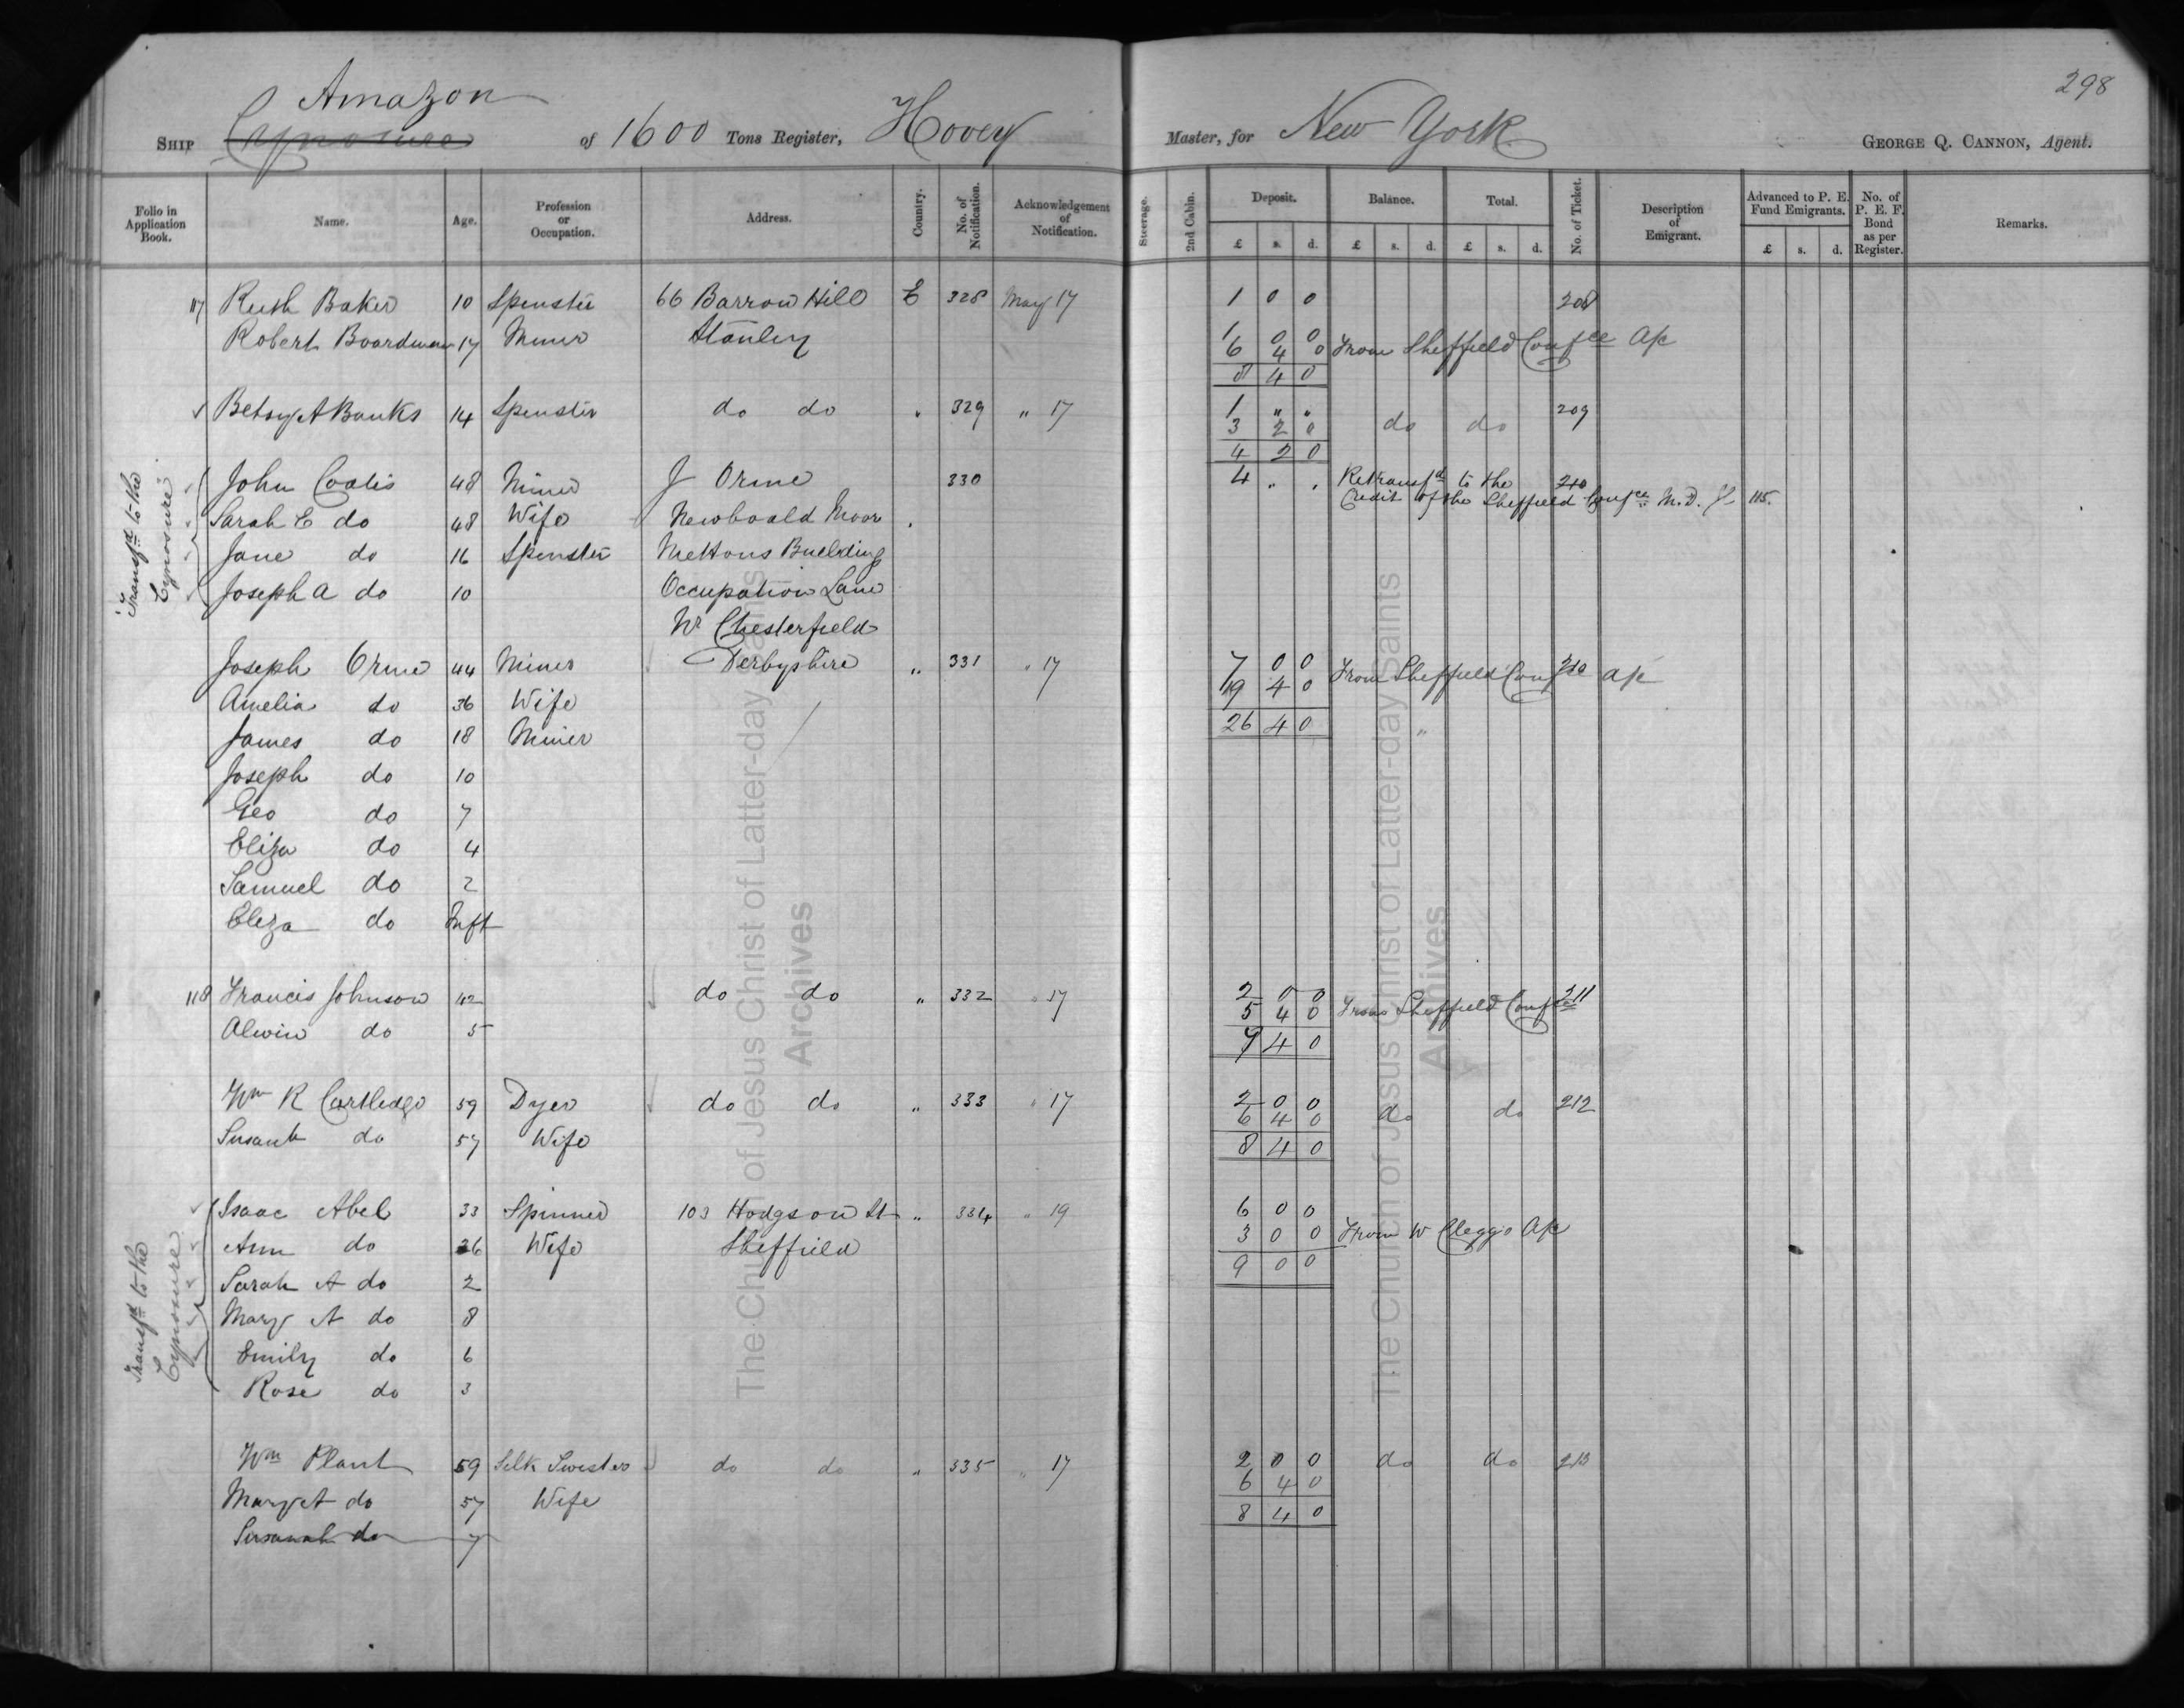 298
Amazon
SHIP Cynosure of 1600 Tons Register, Hovey Master, for New York GEORGE Q. CANNON, Agent.
Folio in Application Book. Name. Age. Profession or Occupation. Address. Country. No. of Notification. Acknowledgement of Notification. Steerage. 2nd Cabin. Deposit. Balance. Total. No. of Ticket. Description of Emigrant. Advanced to P. E. Fund Emigrants. No. of P. E. F. Bond as per Register. Remarks.
£ s. d. £ s. d. £ s. d. £ s. d.
117 Ruth Baker 10 Spinster 66 Barrow Hill E 328 May 17 1 0 0 208
Robert Boardman 17 Miner Stanley 1 0 0
6 4 0 From Sheffield Confce A/c
8 4 0
Betsy A Banks 14 Spinster do do " 329 " 17 1 " " 209
3 2 0 do do
4 2 0
Transfd to the Cynosure
John Coates 48 Miner J Orme 330 4 . . Retransfd to the 210
Sarah E do 48 Wife Newboald Moor Credit of the Sheffield Confce M.D. 115
Jane do 16 Spinster Mettons Buelding
Joseph A do 10 Occupation Lane
Nr Chesterfield
Joseph Orme 44 Miner Derbyshire " 331 " 17 7 0 0 From Sheffield Confce 210 A/c
19 4 0
Amelia do 36 Wife 26 4 0
James do 18 Miner "
Joseph do 10
Geo do 7
Eliza do 4
Samuel do 2
Eleza do Inft
118 Francis Johnson 42 do do " 332 " 17 2 0 0 211
5 4 0 From Sheffield Confce
Alwin do 5 7 4 0
Wm R Cartledge 59 Dyer do do " 333 " 17 2 0 0 212
6 4 0 do do
Susanh do 57 Wife 8 4 0
Transfd to the Cynosure
Isaac Abel 33 Spinner 103 Hodgson St " 334 " 19 6 0 0
Ann do 36 Wife Sheffield 3 0 0 From W Cleggs A/c
9 0 0
Sarah A do 2
Mary A do 8
Emily do 6
Rose do 3
Wm Plant 59 Silk Twister do do " 335 " 17 2 0 0 do do 213
6 4 0
Mary A do 57 Wife 8 4 0
Susanah do 7
The Church of Jesus Christ of Latter-day Saints
Archives
The Church of Jesus Christ of Latter-day Saints
Archives